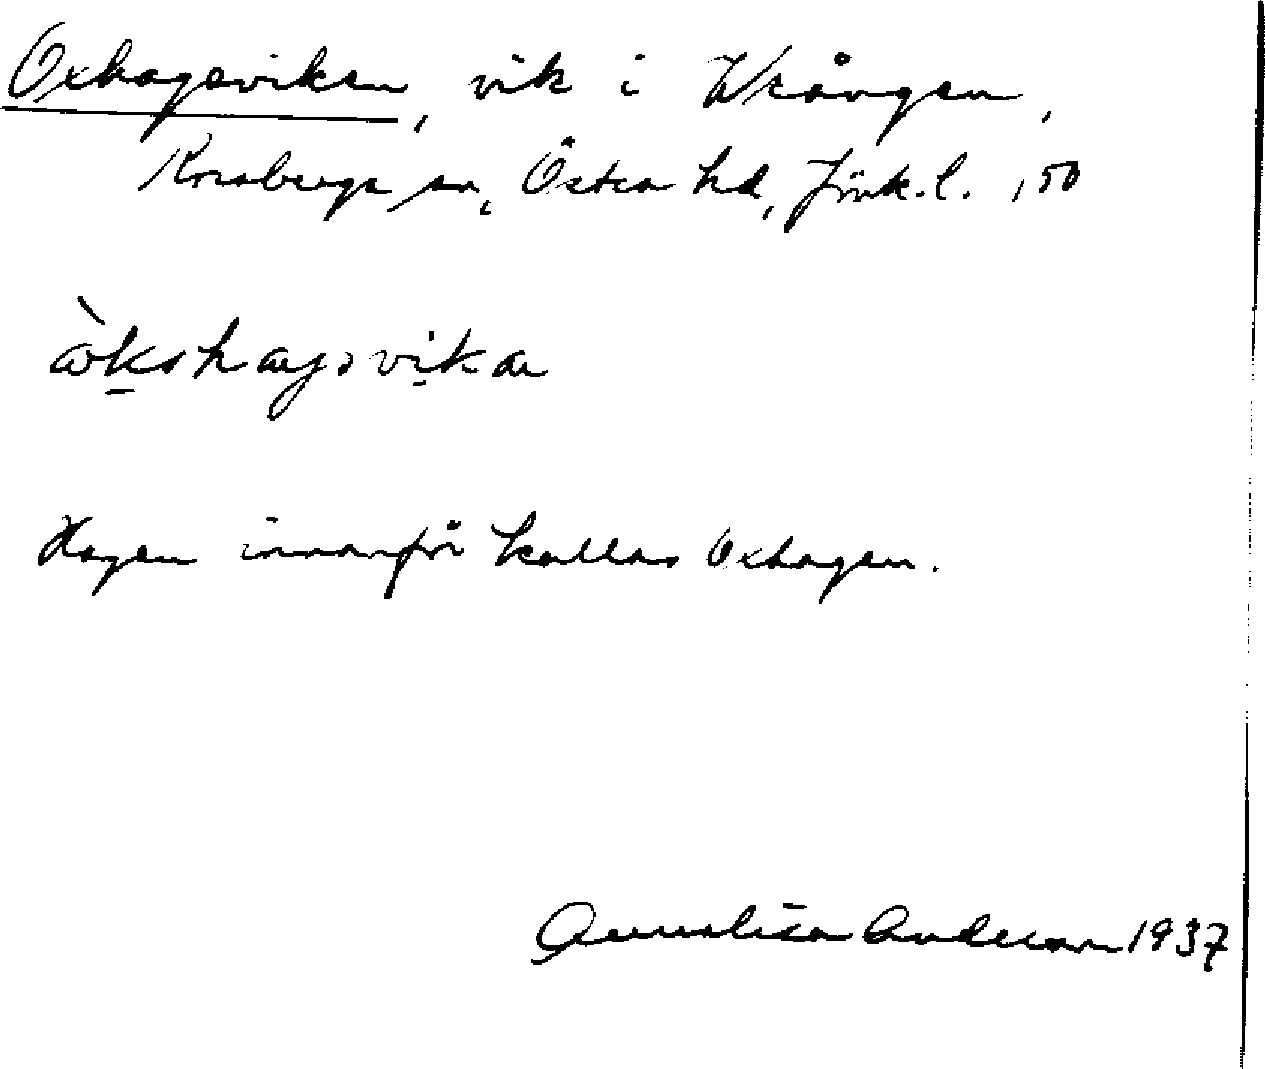 Oxhagsviken, vik i Wrången,
Korsberga sn, Östra hd, Jönk.l. , 50
Hagen innanför kallas Oxhagen.
Annalisa Anderson 1937